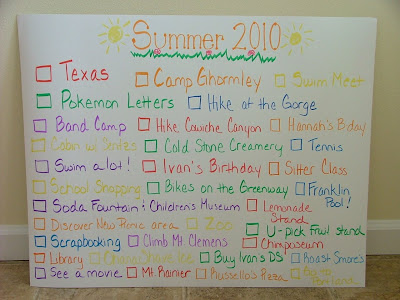 Summer 2010
Texas Camp Ghormley Swim Meet
Pokemon Letters Hike at the Gorge
Band Camp Hike Cowiche Canyon Hannah's B.day
Cabin w/ Cold Stone Creamery Tennis
Swim alot! Ivan's Birthday Sitter Class
School Shopping Bikes on the Greenway Franklin Pool!
Soda Fountain & Children's Museum Lemonade Stand
Discover New Picnic area Zoo U-pick Fruit stand
Scrapbooking Climb Mt. Clemens Chimposeum
Library Ohana Shave Ice Buy Ivan's DS Roast Smore's
See a movie Mt. Rainier Russello's Pizza Go to Portland